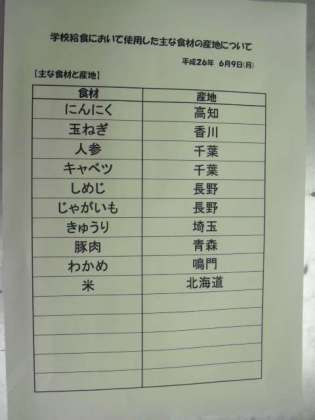 学校給食において使用した主な食材の産地について
平成26年 6月9日(月)
【主な食材と産地】
食材 産地
にんにく 高知
玉ねぎ 香川
人参 千葉
キャベツ 千葉
しめじ 長野
じゃがいも 長野
きゅうり 埼玉
豚肉 青森
わかめ 鳴門
米 北海道